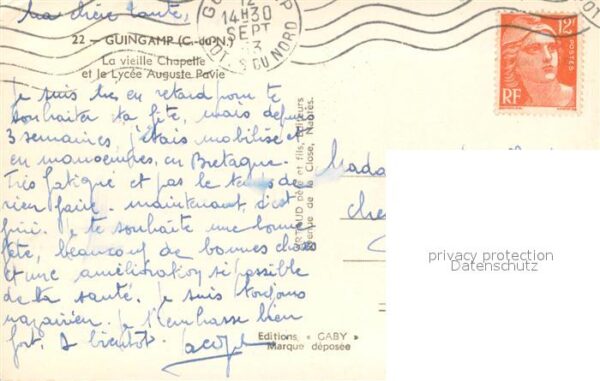 Ma chère tante,
22 — GUINGAMP (C.-du-N.)
La vieille Chapelle
et le Lycée Auguste Pavie
Je suis en retard pour te
souhaiter ta fête, mais depuis
3 semaines, j'étais mobilisé et
en manoeuvres, en Bretagne.
Très fatigué et pas le temps de
rien faire. maintenant, c'est
fini. Je te souhaite une bonne
fête, beaucoup de bonnes choses
et une amélioration si possible
de ta santé. Je suis toujours
nazairien. Je t'embrasse bien
fort. A bientôt.
14H30
SEPT
DU NORD
12F
POSTES
RF
ARTAUD père et fils, Éditeurs
Avenue de la Close, Nantes.
Mada
che
Editions « GABY »
Marque déposée
privacy protection
Datenschutz